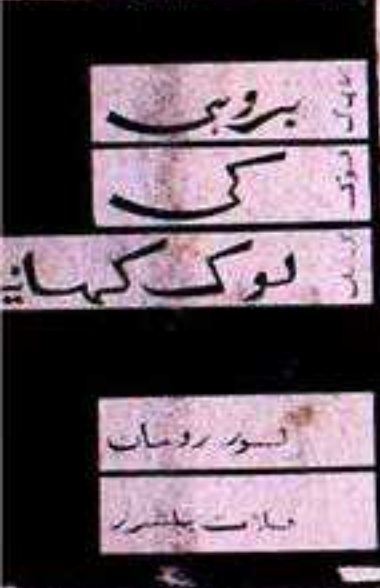 بروہی
کی
لوک کہانیـ
انور رومان
قلات پبلشرز